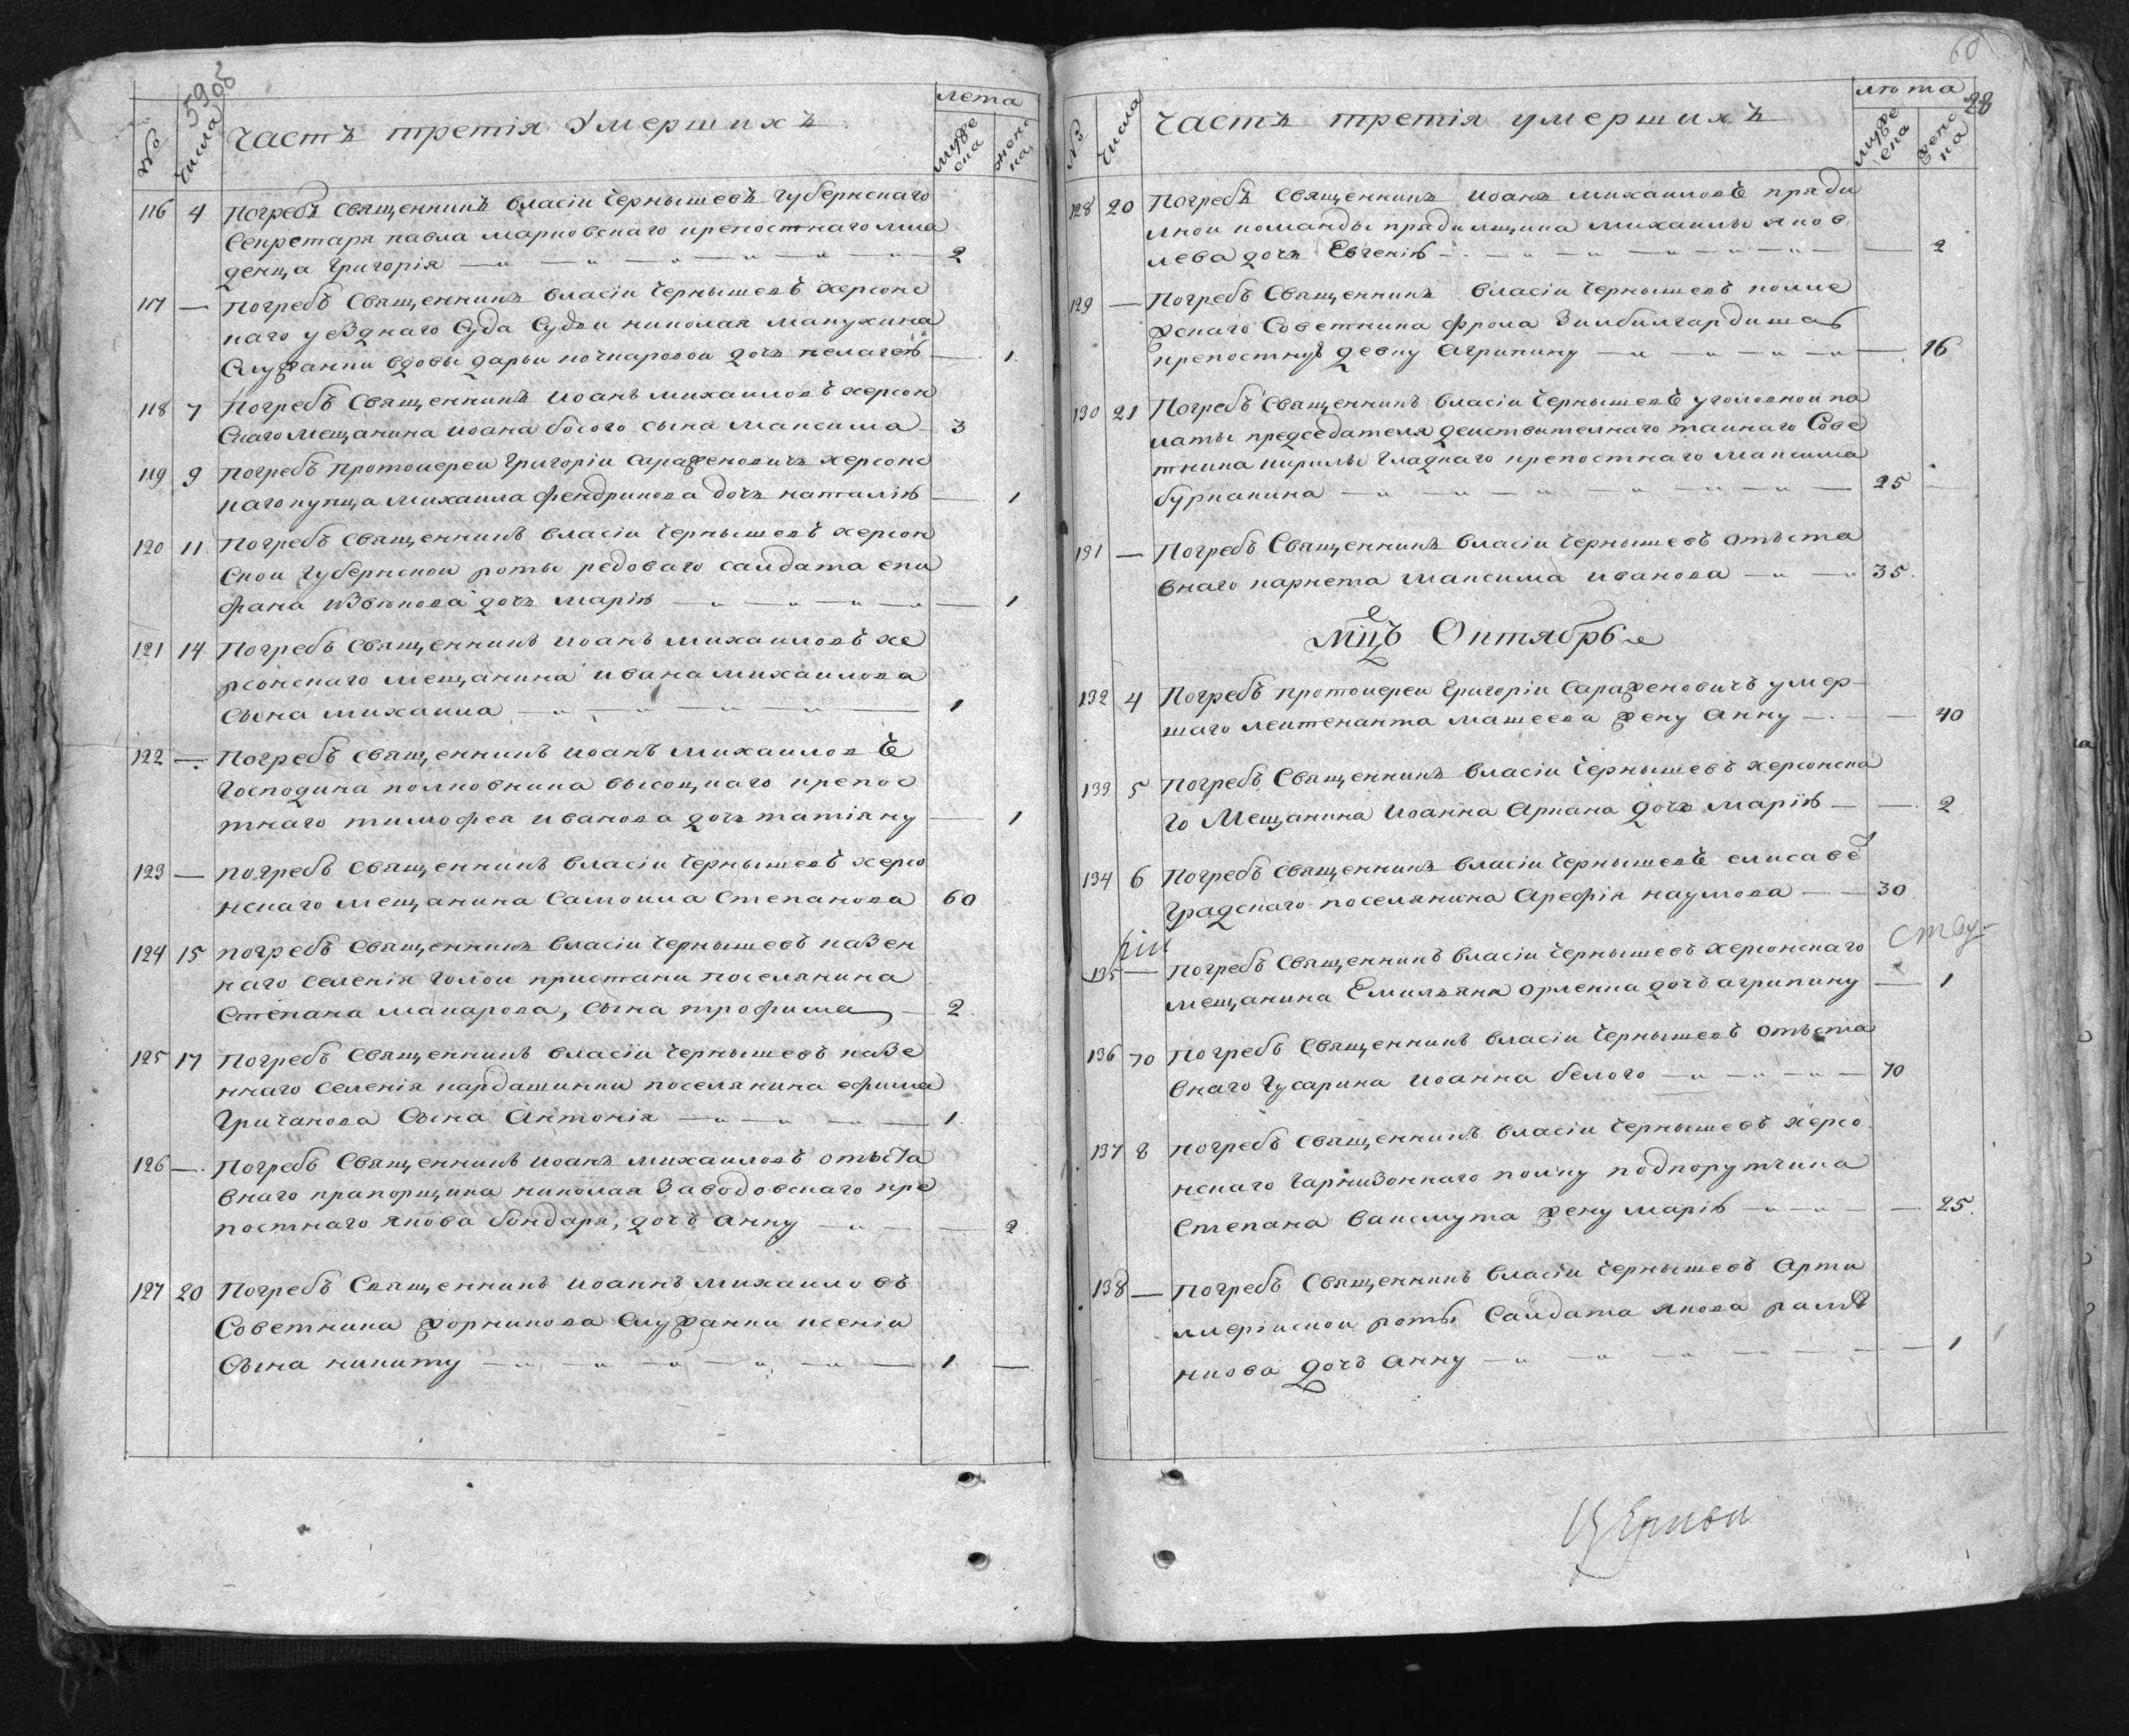 59 об
№ числа Частъ третія Умершихъ лета
муже ска женс ка
116 4 Погребъ священникъ Власіи Чернышевъ губернскаго
Секретаря павла марковскаго крепостнаго мла
денца Григорія 2
117 — Погребъ Священникъ власіи Чернышевъ херсонс
каго уезднаго Суда Судьи николая манухина
Служанки вдовы дарьи кочкаровои дочь пелагею — 1
118 7 Погребъ Священникъ иоанъ михаиловъ херсон
Скаго мещанина иоана босого сына максима 3
119 9 Погребъ протоиереи Григоріи сараженовичъ херсонс
каго купца михаила фендрикова дочь наталию — 1
120 11 Погребъ священникъ власіи Чернышевъ херсон
Скои губернскои роты редоваго салдата епи
фана дочь марию — 1
121 14 Погребъ священникъ иоанъ михаиловъ хе
рсонскаго мещанина ивана михаилова
сына михаила 1
122 — Погребъ священникъ иоанъ михаиловъ
Господина полковника высоцкаго крепос
тнаго тимофея иванова дочь татіяну — 1
123 — погребъ священникъ власіи Чернышевъ херсо
нскаго мещанина Самоила Степанова 60
124 15 погребъ Священникъ власіи Чернышевъ казен
наго селенія Голои пристани поселянина
Степана макарова, сына трофима — 2
125 17 Погребъ Священникъ власіи Чернышевъ казе
ннаго селенія кардашинки поселянина ефима
Гричанова Сына Антонія 1
126 — Погребъ Священникъ иоанъ михаиловъ отъста
внаго прапорщика николая Заводовскаго кре
постнаго якова бондаря, дочь анну — 2
127 20 Погребъ Священникъ иоаннъ михаиловъ
Советника жорникова Служанки ксеніи
Сына никиту 1 —
60
28
№ числа Частъ третія умершихъ лѣта
муже ска женс ка
128 20 Погребъ священникъ иоанъ михаиловъ пряди
лнои команды прядилщика михаилы яков
лева дочь Евгению — 2
129 — Погребъ Священникъ власіи Чернышевъ колле
жскаго Советника фрола
крепостную девку агрипину — 16
130 21 Погребъ священникъ власіи Чернышевъ уголовнои па
латы председателя действителнаго таинаго Сове
тника кирилы Гладкаго крепостнаго максима
бурканина 25 —
131 — Погребъ Священникъ власіи Чернышевъ отъста
внаго карнета максима иванова 35
мцъ Октябрь
132 4 Погребъ протоиереи Григоріи Сараженовичъ умер-
шаго леитенанта машеева жену анну — 40
133 5 Погребъ Священникъ власіи Чернышевъ херсонска
го Мещанина иоанна Аркана дочь марию — 2
134 6 Погребъ священникъ власіи Чернышевъ елисаве
Градскаго поселянина Арефія наумова 30
135 — Погребъ священникъ власіи Чернышевъ херсонскаго
мещанина Емильяна орленка дочь агрипину — 1
136 70 Погребъ Священникъ власіи Чернышевъ отъста
внаго Гусарина иоанна белого 70
137 8 Погребъ священникъ власіи Чернышевъ херсо
нскаго Гарнизоннаго полку подпорутчика
Степана ваксмута жену марию — 25
138 — Погребъ Священникъ власіи Чернышевъ Арти
лерїискои роты Салдата якова
никова дочь анну — 1
Церкви